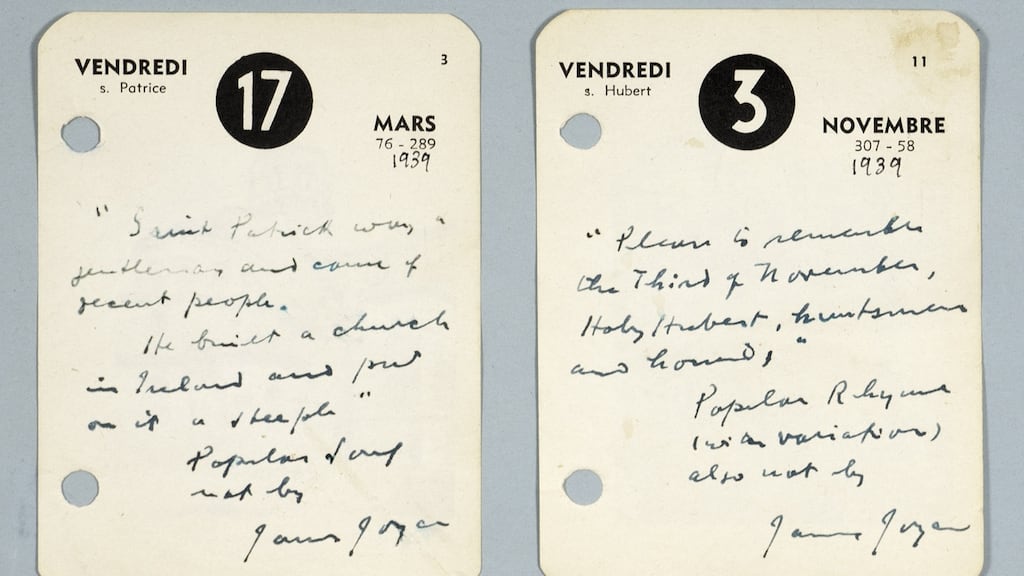 VENDREDI
s. Patrice
17
3
MARS
76 - 289
1939
" Saint Patrick was a
gentleman and came of
decent people.
He built a church
in Ireland and put
on it a steeple "
Popular Song
not by
James Joyce
VENDREDI
s. Hubert
3
11
NOVEMBRE
307 - 58
1939
" Please to remember
the Third of November,
Holy Hubert, huntsmen
and hounds, "
Popular Rhyme
(with variation)
also not by
James Joyce